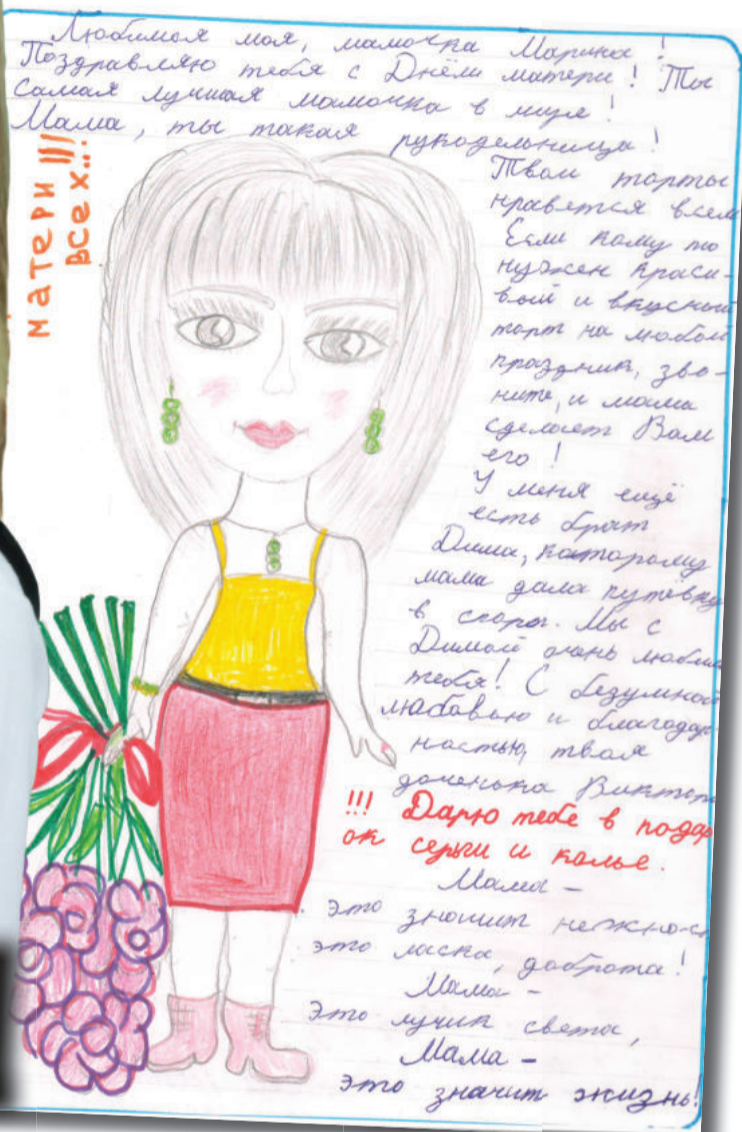 Любимая моя, мамочка Марина!
Поздравляю тебя с Днём матери! Ты
самая лучшая мамочка в мире!
Мама, ты такая рукодельница!
матери !!!
всех..!
Твои торты
нравятся всем
Если кому то
нужен краси-
вый и вкусный
торт на любой
праздник, зво-
ните, и мама
сделает Вам
его!
У меня ещё
есть брат
Дима, которому
мама дала путёвку
в спорт. Мы с
Димой очень любим
тебя! С безумной
любовью и благодар
ностью, твоя
доченька
!!! Дарю тебе в подар
ок серьги и колье.
Мама -
это значит нежнос
это ласка, доброта!
Мама -
Это лучик света,
Мама -
это значит жизнь!